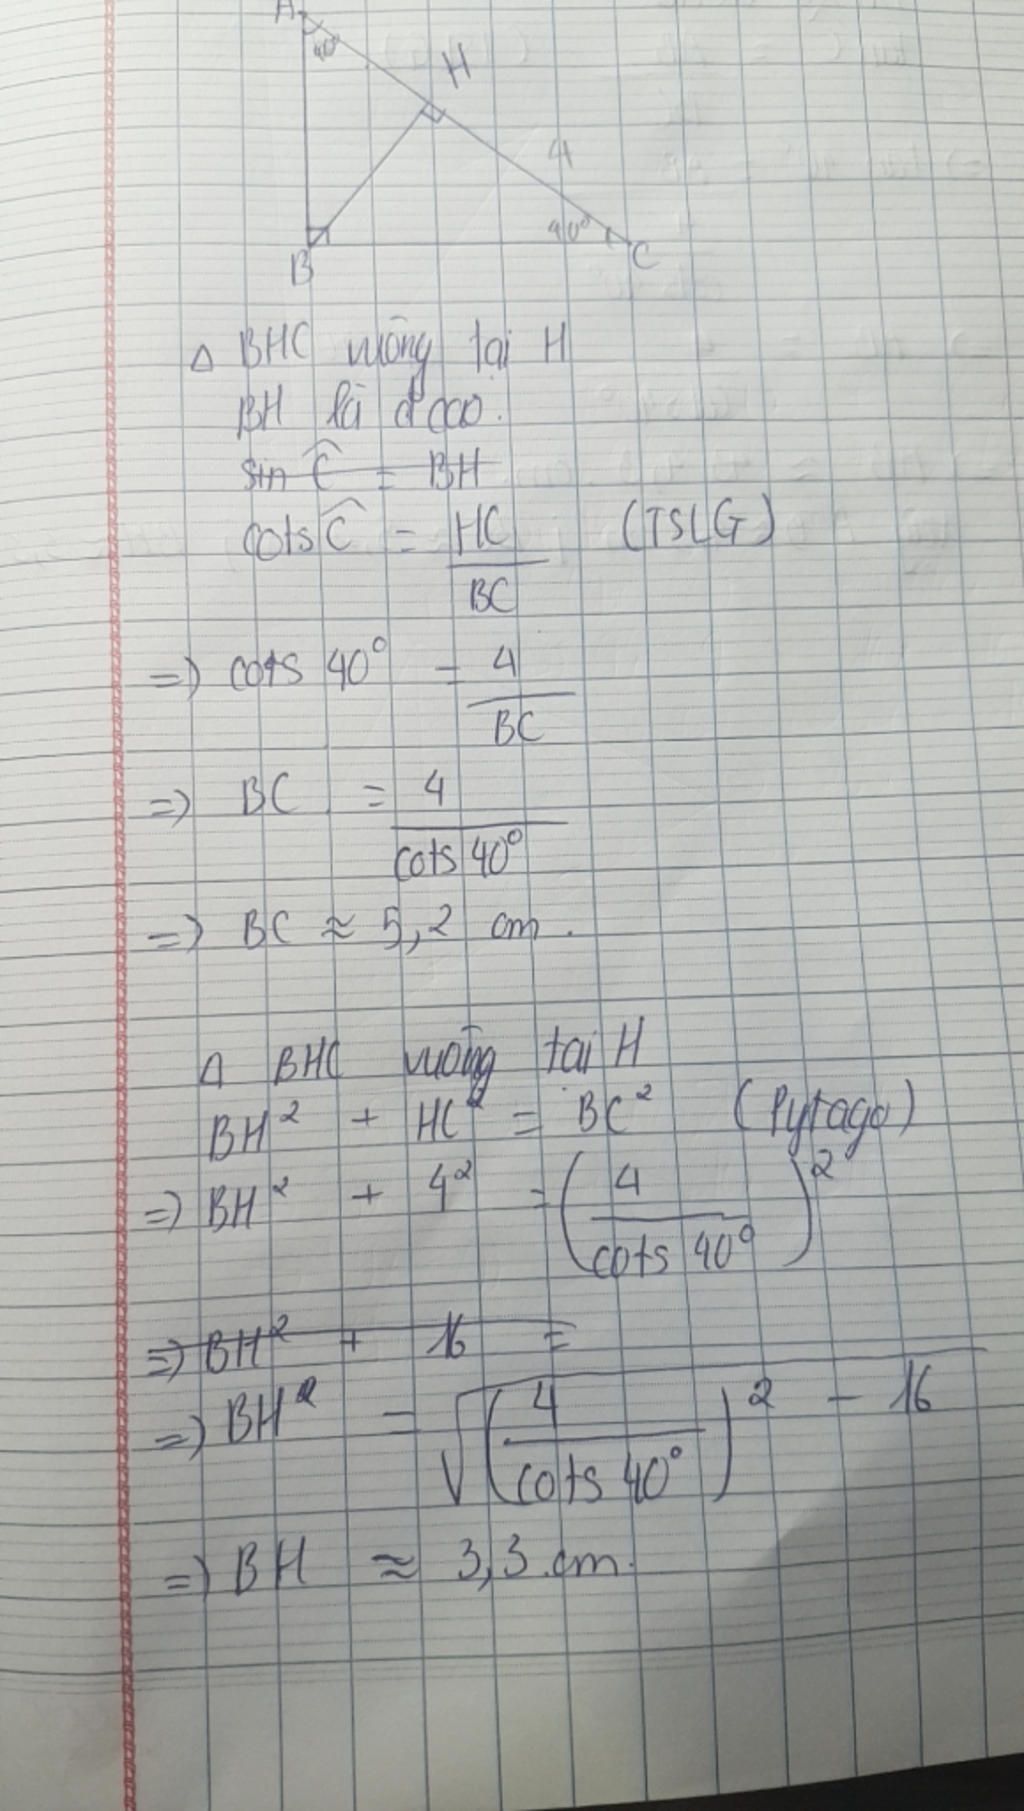 A
40°
H
4
40°
B
C
Δ BHC vuông tại H
BH là đ cao.
sin Ĉ = BH
cots Ĉ = HC / BC (TSLG)
=> cots 40° = 4 / BC
=> BC = 4 / cots 40°
=> BC ≈ 5,2 cm.
Δ BHC vuông tại H
BH² + HC² = BC² (Pytago)
=> BH² + 4² = (4 / cots 40°)²
=> BH² + 16 =
=> BH² = √(4 / cots 40°)² - 16
=> BH ≈ 3,3 cm.